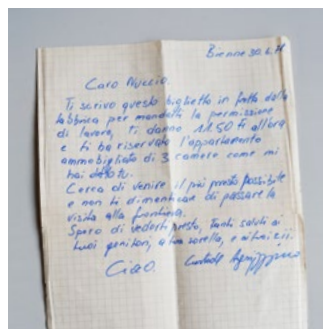 Bienne 30.6.71
Caro Nuccio.
Ti scrivo questo biglietto in fretta dalla
fabbrica per mandarti la permissione
di lavoro, ti danno 11.50 Fr all'ora
e ti ho riservato l'appartamento
ammobigliato di 3 camere come mi
hai detto tu.
Cerca di venire il più presto possibile
e non ti dimenticare di passare la
visita alla frontiera.
Spero di vederti presto, tanti saluti ai
tuoi genitori, a tua sorella, e ai tuoi zii.
Ciao.